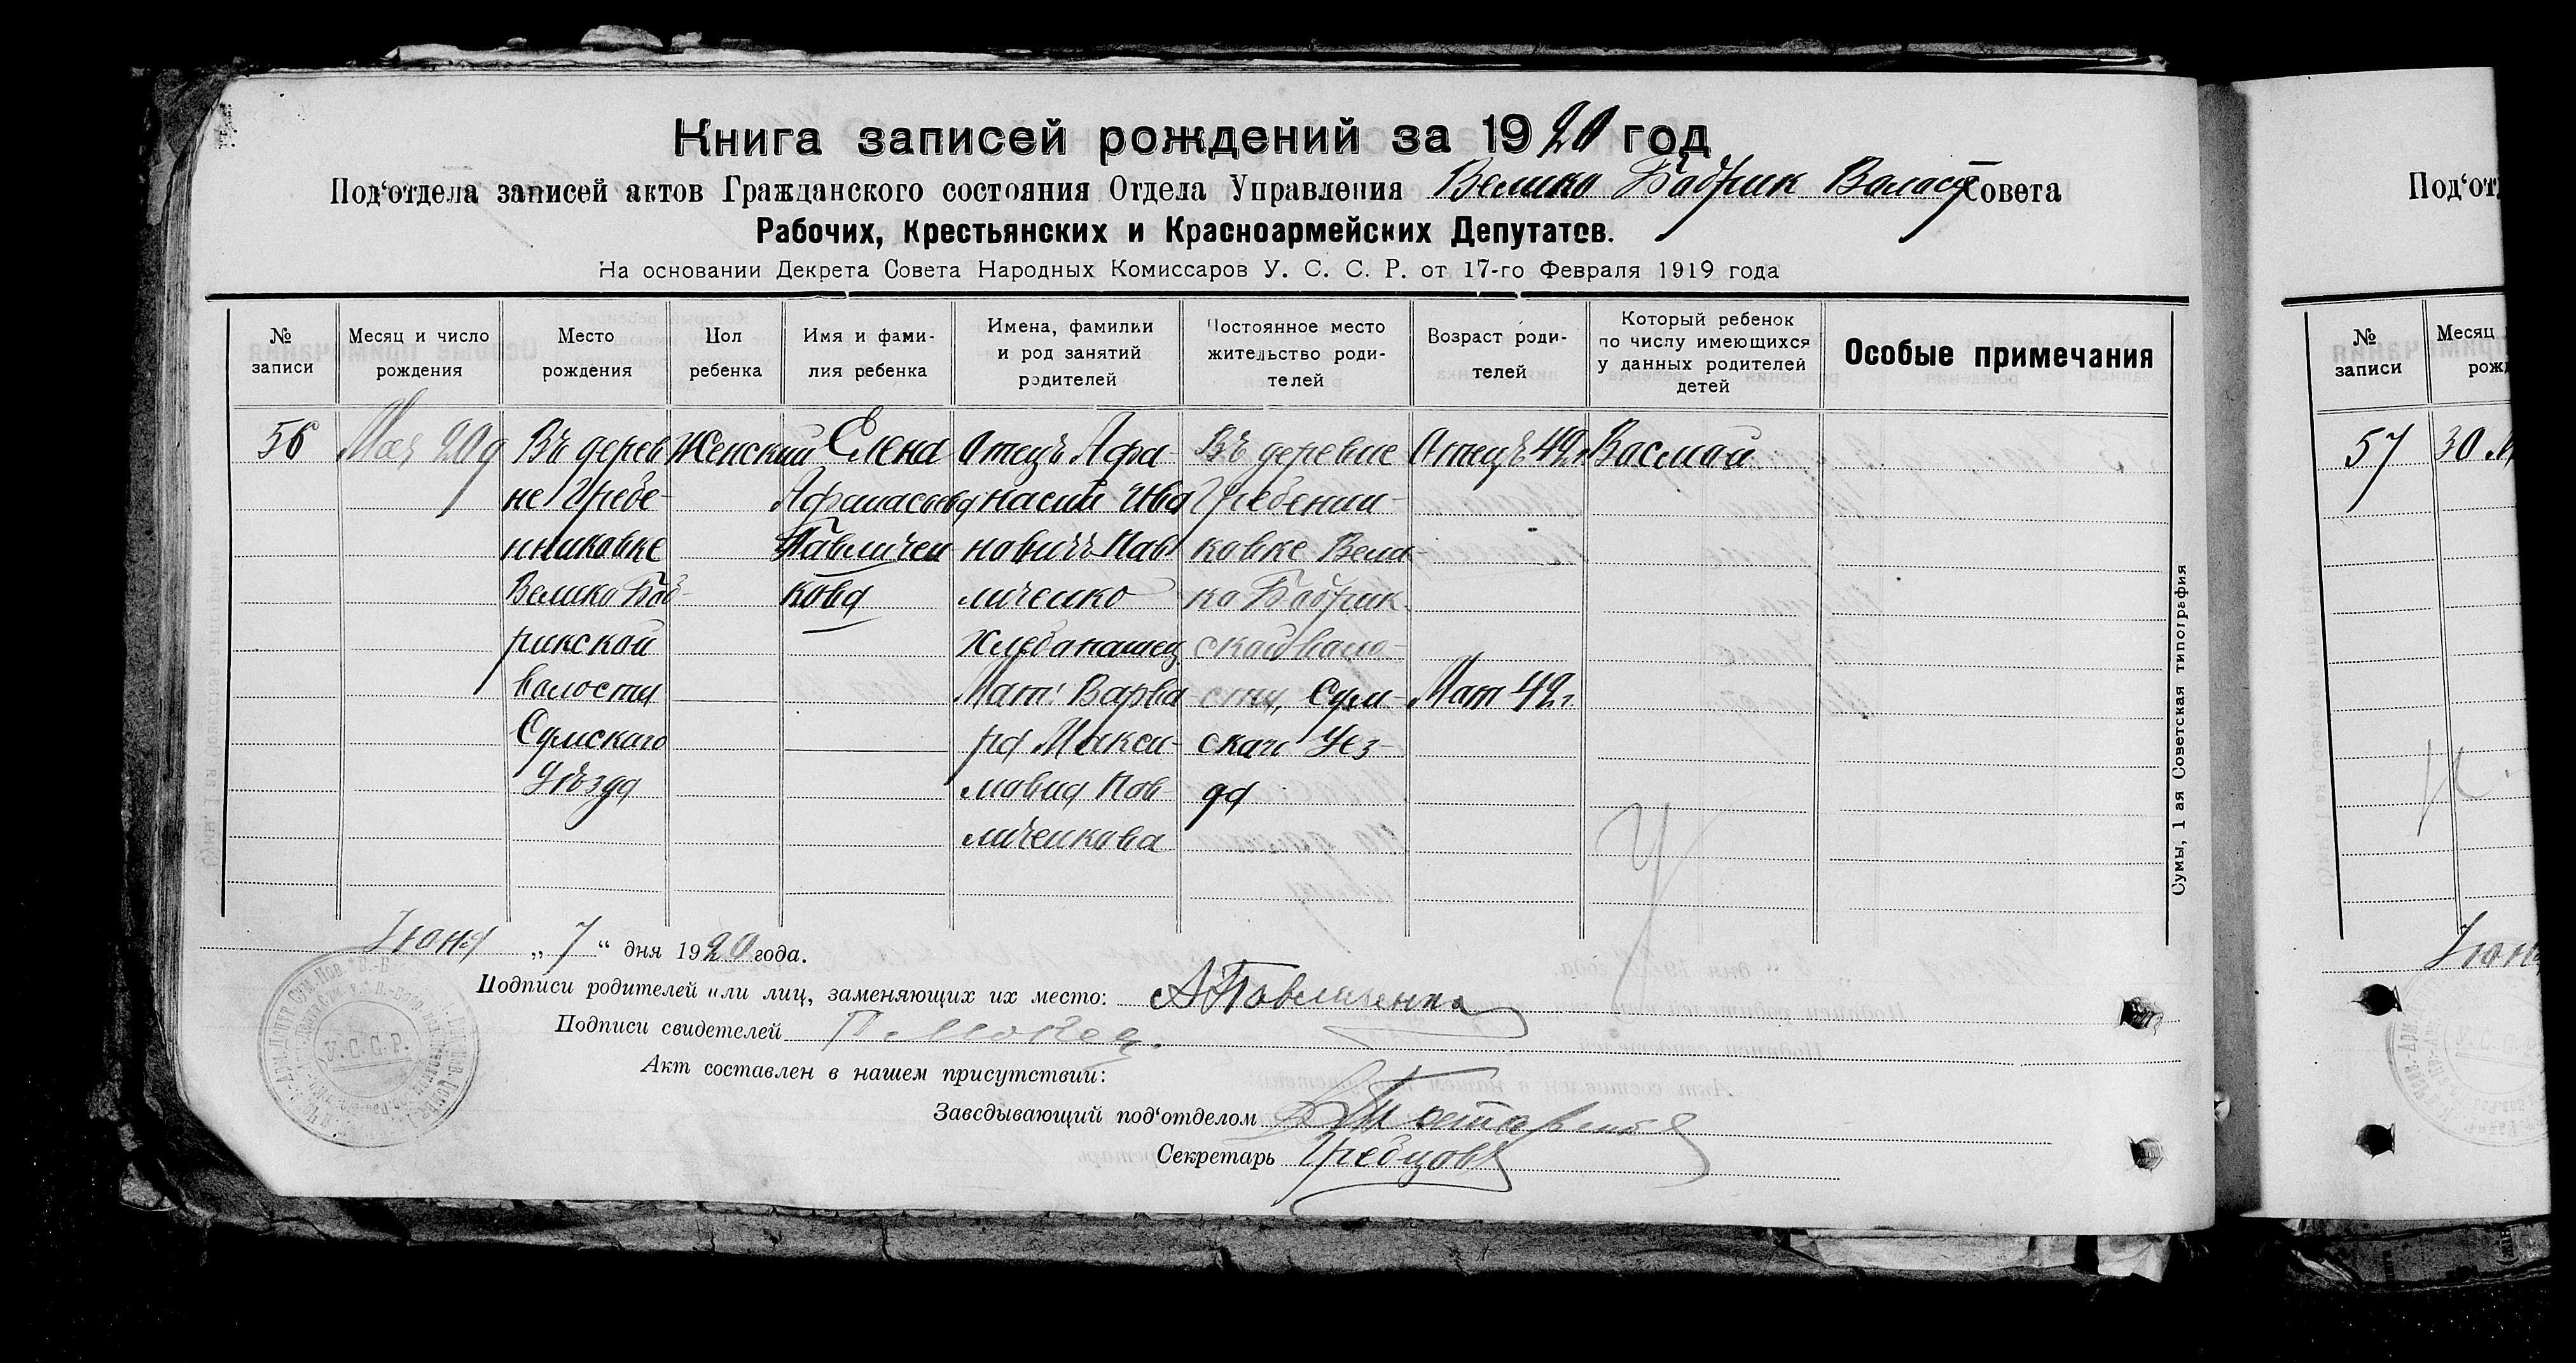 Книга записей рождений за 1920 год
Под‘отдела записей актов Гражданского состояния Отдела Управления Велико Бобрик Валост Совета
Рабочих, Крестьянских и Красноармейских Депутатов.
На основании Декрета Совета Народных Комиссаров У. С. С. Р. от 17-го Февраля 1919 года
№ записи
Месяц и число рождения
Место рождения
Пол ребенка
Имя и фами-
лия ребенка
Имена, фамилии
и род занятий
родителей
Постоянное место
жительство роди-
телей
Возраст роди-
телей
Который ребенок
по числу имеющихся
у данных родителей
детей
Особые примечания
56
Мая 20д
Въ дерев
не Гребе-
нниковке
Велико Боб-
рикской
валости
Сумскаго
Уѣзда
Женский
Елена
Афанасьевна
Павличен
кова
Отецъ Афа-
насий Ива
новичъ Пав
личенко
Хлебапашец
Мат: Варва
ра Макси-
мовна Пав-
личенкова
Въ деревне
Гребенни-
ковке Вели-
ко Бобрик
ской вало-
сти, Сум-
скаго Уез-
да
Отецъ 42г
Мат 42г.
Васмой
Июня „7“ дня 1920 года.
Подписи родителей или лиц, заменяющих их место: А Павличенко
Подписи свидетелей
Акт составлен в нашем присутствии:
Заведывающий под‘отделом
Секретарь Гребцовъ
У.С.С.Р.
Сумы, 1 ая Советская типография
Под‘от
№ записи
Месяц
рожд
57
30 М
Июн